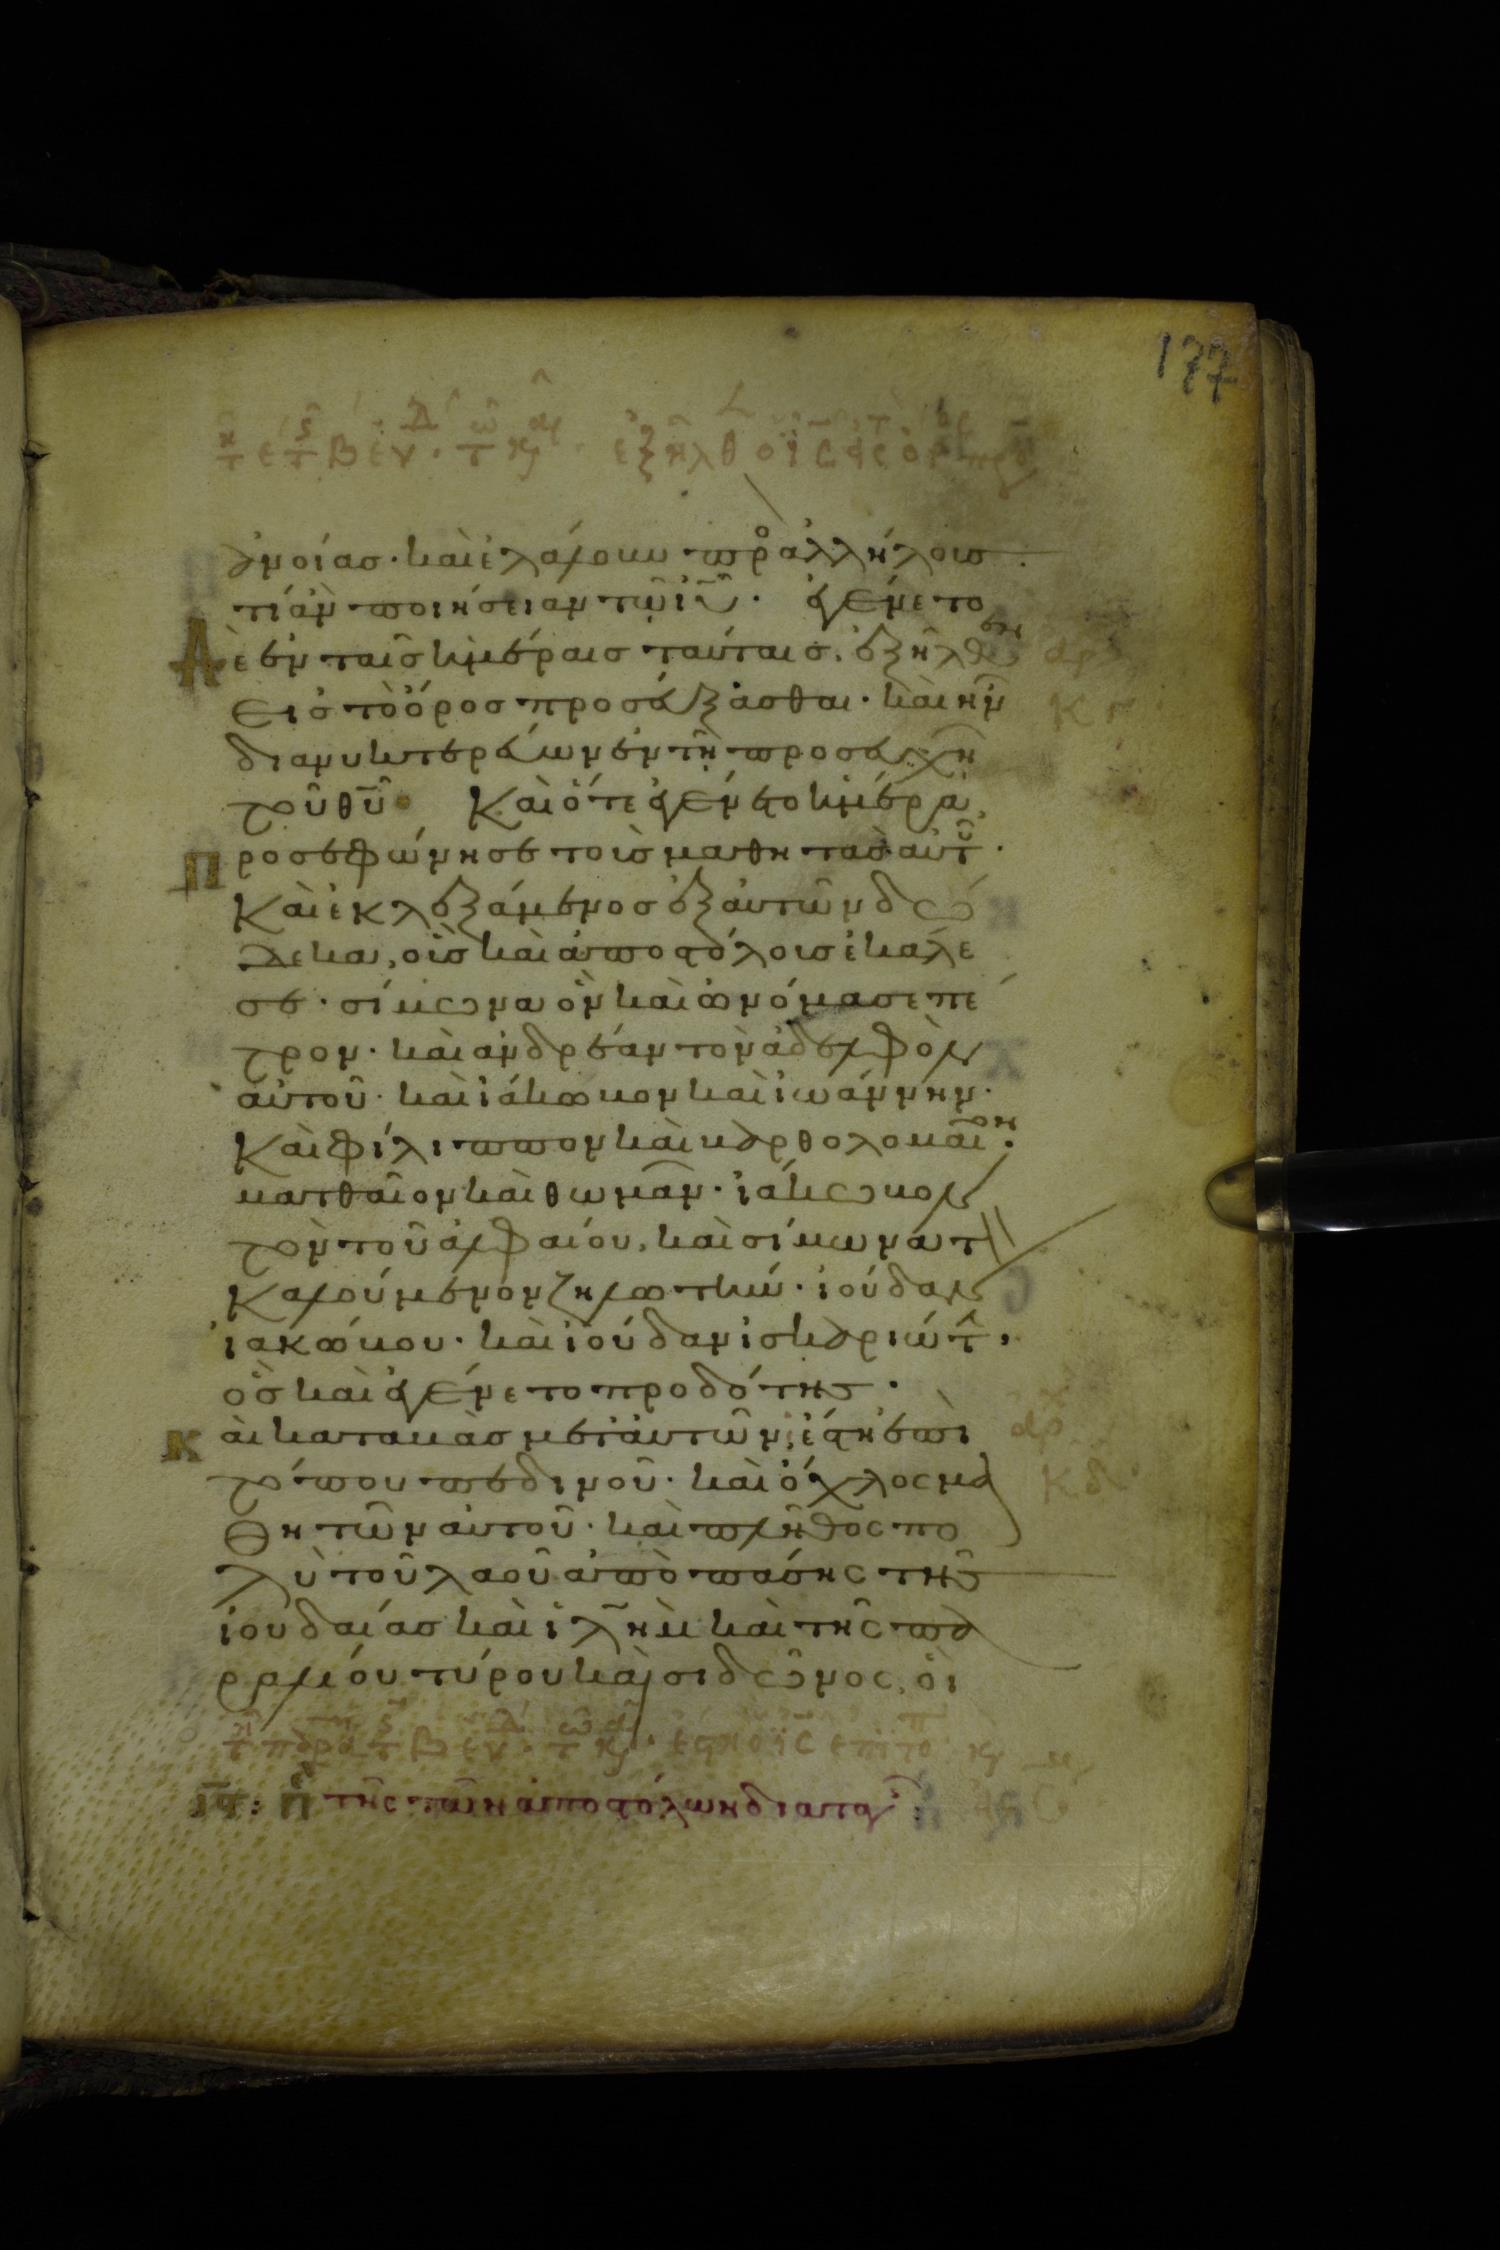 177
ἀνοίας· καὶ ἐλάλουν πρὸ ἀλλήλους·
τί ἂν ποιήσειαν τῶ ἰυ· ἐγένετο
δὲ ἐν ταῖς ἡμέραις ταύταις, ἐξῆλθεν
εἰς τὸ ὄρος προσεύξασθαι· καὶ ἦν
διανυκτερεύων ἐν τῇ προσευχῇ
τοῦ θυ· Καὶ ὅτε ἐγένετο ἡμέρα,
Προσεφώνησε τοὺς μαθητὰς αὐτ·
Καὶ ἐκλεξάμενος ἐξ αὐτῶν δώ
δεκα, οὓς καὶ ἀποστόλους ἐκάλε
σε· σίμωνα ὃν καὶ ὠνόμασε πέ
τρον· καὶ ἀνδρέαν τὸν ἀδελφὸν
αὐτοῦ· καὶ ἰάκωβον καὶ ἰωάννην·
Καὶ φίλιππον καὶ βαρθολομαῖον·
ματθαῖον καὶ θωμᾶν· ἰάκωβον
τὸν τοῦ ἀλφαίου, καὶ σίμωνα τ
Καλούμενον ζηλωτήν· ἰούδαν
ἰακώβου· καὶ ἰούδαν ἰσκαριώτ,
ὃς καὶ ἐγένετο προδότης·
Καὶ καταβὰς μετ αὐτῶν, ἔστη ἐπὶ
τόπου πεδινοῦ· καὶ ὄχλος μα
θητῶν αὐτοῦ· καὶ πλῆθος πο
λὺ τοῦ λαοῦ ἀπὸ πάσης τῆς
ἰουδαίας καὶ ἰλημ καὶ τῆς πα
ραλίου τύρου καὶ σιδῶνος, οἳ
ιϛ: Π τῆς τῶν ἀποστόλων διαταγ